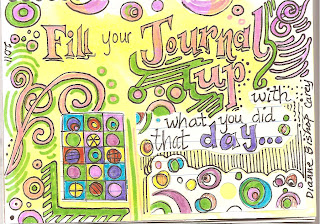 2011
Fill your Journal
up
with
what you did
that day...
Dianne Bishop Carey